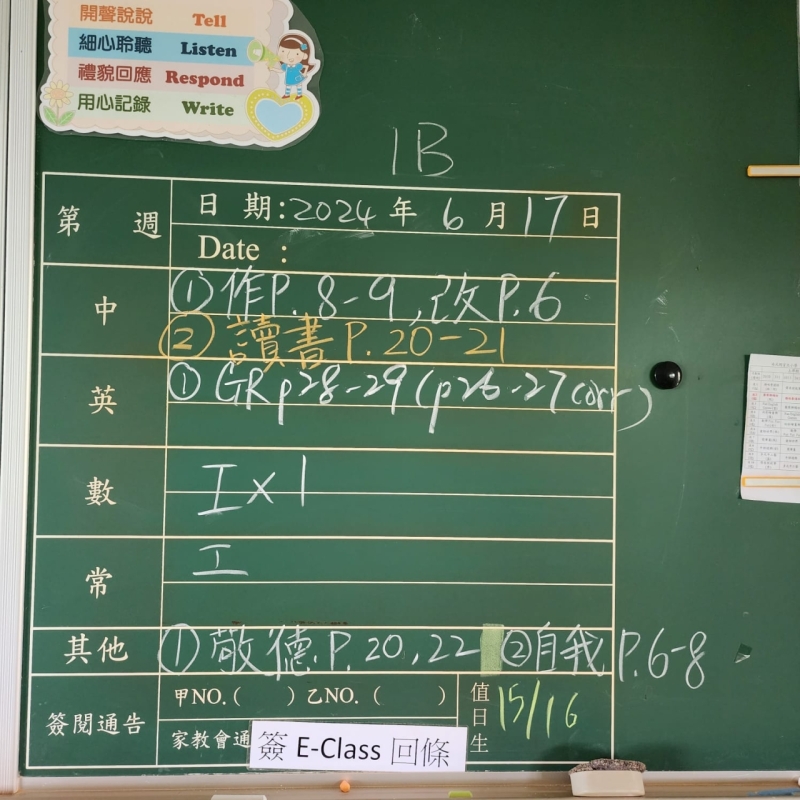 開聲說說 Tell
細心聆聽 Listen
禮貌回應 Respond
用心記錄 Write
1B
第 週 日 期:2024 年 6 月 17 日
Date :
中 ①作P.8-9,改P.6
②讀書P.20-21
英 ①GR p28-29(p26-27corr)
數 工x1
常 工
其他 ①敬德P.20,22 ②自我P.6-8
簽閱通告 甲NO.( ) 乙NO.( ) 值日生 15/16
家教會通
簽 E-Class 回條